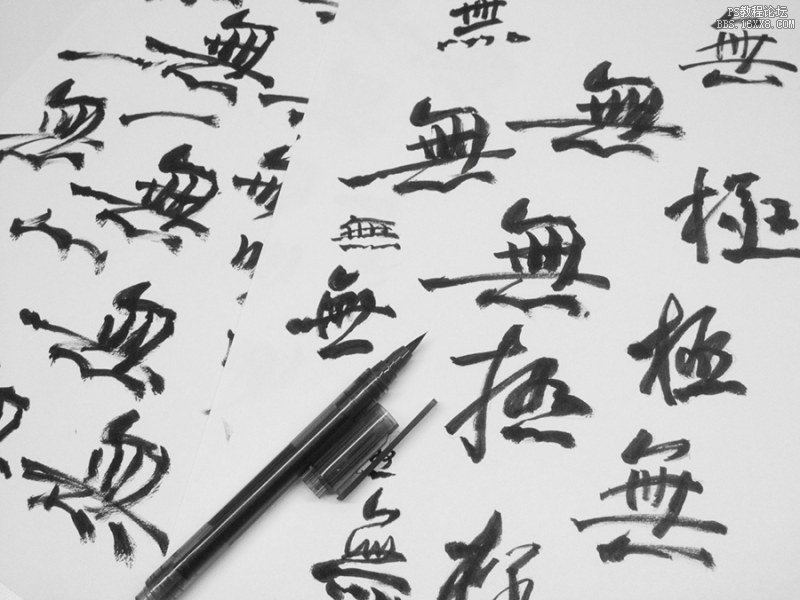 PS教程论坛
BBS.16XX8.COM
無
無
無
無
無
無
無
極
無
無
無
極
無
極
無
無
無